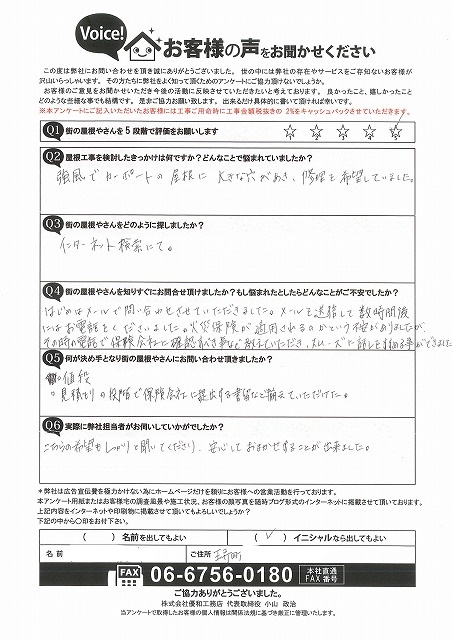 Voice!
お客様の声をお聞かせください
この度は弊社にお問い合わせを頂き誠にありがとうございました。世の中には弊社の存在やサービスをご存知ないお客様が
沢山いらっしゃいます。その方たちに弊社をよく知って頂くためのアンケートにご協力頂けないでしょうか。
お客様のご意見をお聞かせいただき今後の活動に反映させていただきたいと考えております。良かったこと、嬉しかったこと
どのような些細な事でも結構です。是非ご協力お願い致します。出来るだけ具体的に書いて頂ければ幸いです。
※本アンケートにご記入いただいたお客様には工事ご用命時に工事金額税抜きの 2%をキャッシュバックさせていただきます。
Q1 街の屋根やさんを5段階で評価をお願いします
1 2 3 4 5
Q2 屋根工事を検討したきっかけは何ですか？どんなことで悩まれていましたか？
強風でカーポートの屋根に大きな穴があき、修理を希望していました。
Q3 街の屋根やさんをどのように探しましたか？
インターネット検索にて。
Q4 街の屋根やさんを知りすぐにお問合せ頂けましたか？もし悩まれたとしたらどんなことがご不安でしたか？
はじめはメールで問い合わせさせていただきました。メールを送信して数時間後
にはお電話をくださいました。火災保険が適用されるのかという不安がありましたが、
その時の電話で保険会社に確認すべき事など教えていただき、スムーズに話しを進める事ができました
Q5 何が決め手となり街の屋根やさんにお問い合わせ頂けましたか？
・値段
・見積もりの段階で保険会社に提出する書類など揃えていただけた。
Q6 実際に弊社担当者がお伺いしていかがでしたか？
こちらの希望もしっかりと聞いてくださり、安心しておまかせすることが出来ました。
＊弊社は広告宣伝費を極力かけない為にホームページだけを頼りにお客様への営業活動を行っております。
本アンケート用紙またはお客様宅の調査風景や施工状況、お客様の顔写真を随時ブログ形式のインターネットに掲載させて頂いております。
上記内容をインターネットや印刷物に掲載させて頂いてもよろしいでしょうか？
下記の中から〇印をお付下さい。
（　）名前を出してもよい （✓）イニシャルなら出してもよい
名前 ご住所
FAX 06-6756-0180 本社直通 FAX番号
ご協力ありがとうございました。
株式会社優和工務店 代表取締役 小山 政治
当アンケートで取得したお客様の個人情報は関係法規に基づき厳正に管理いたします。